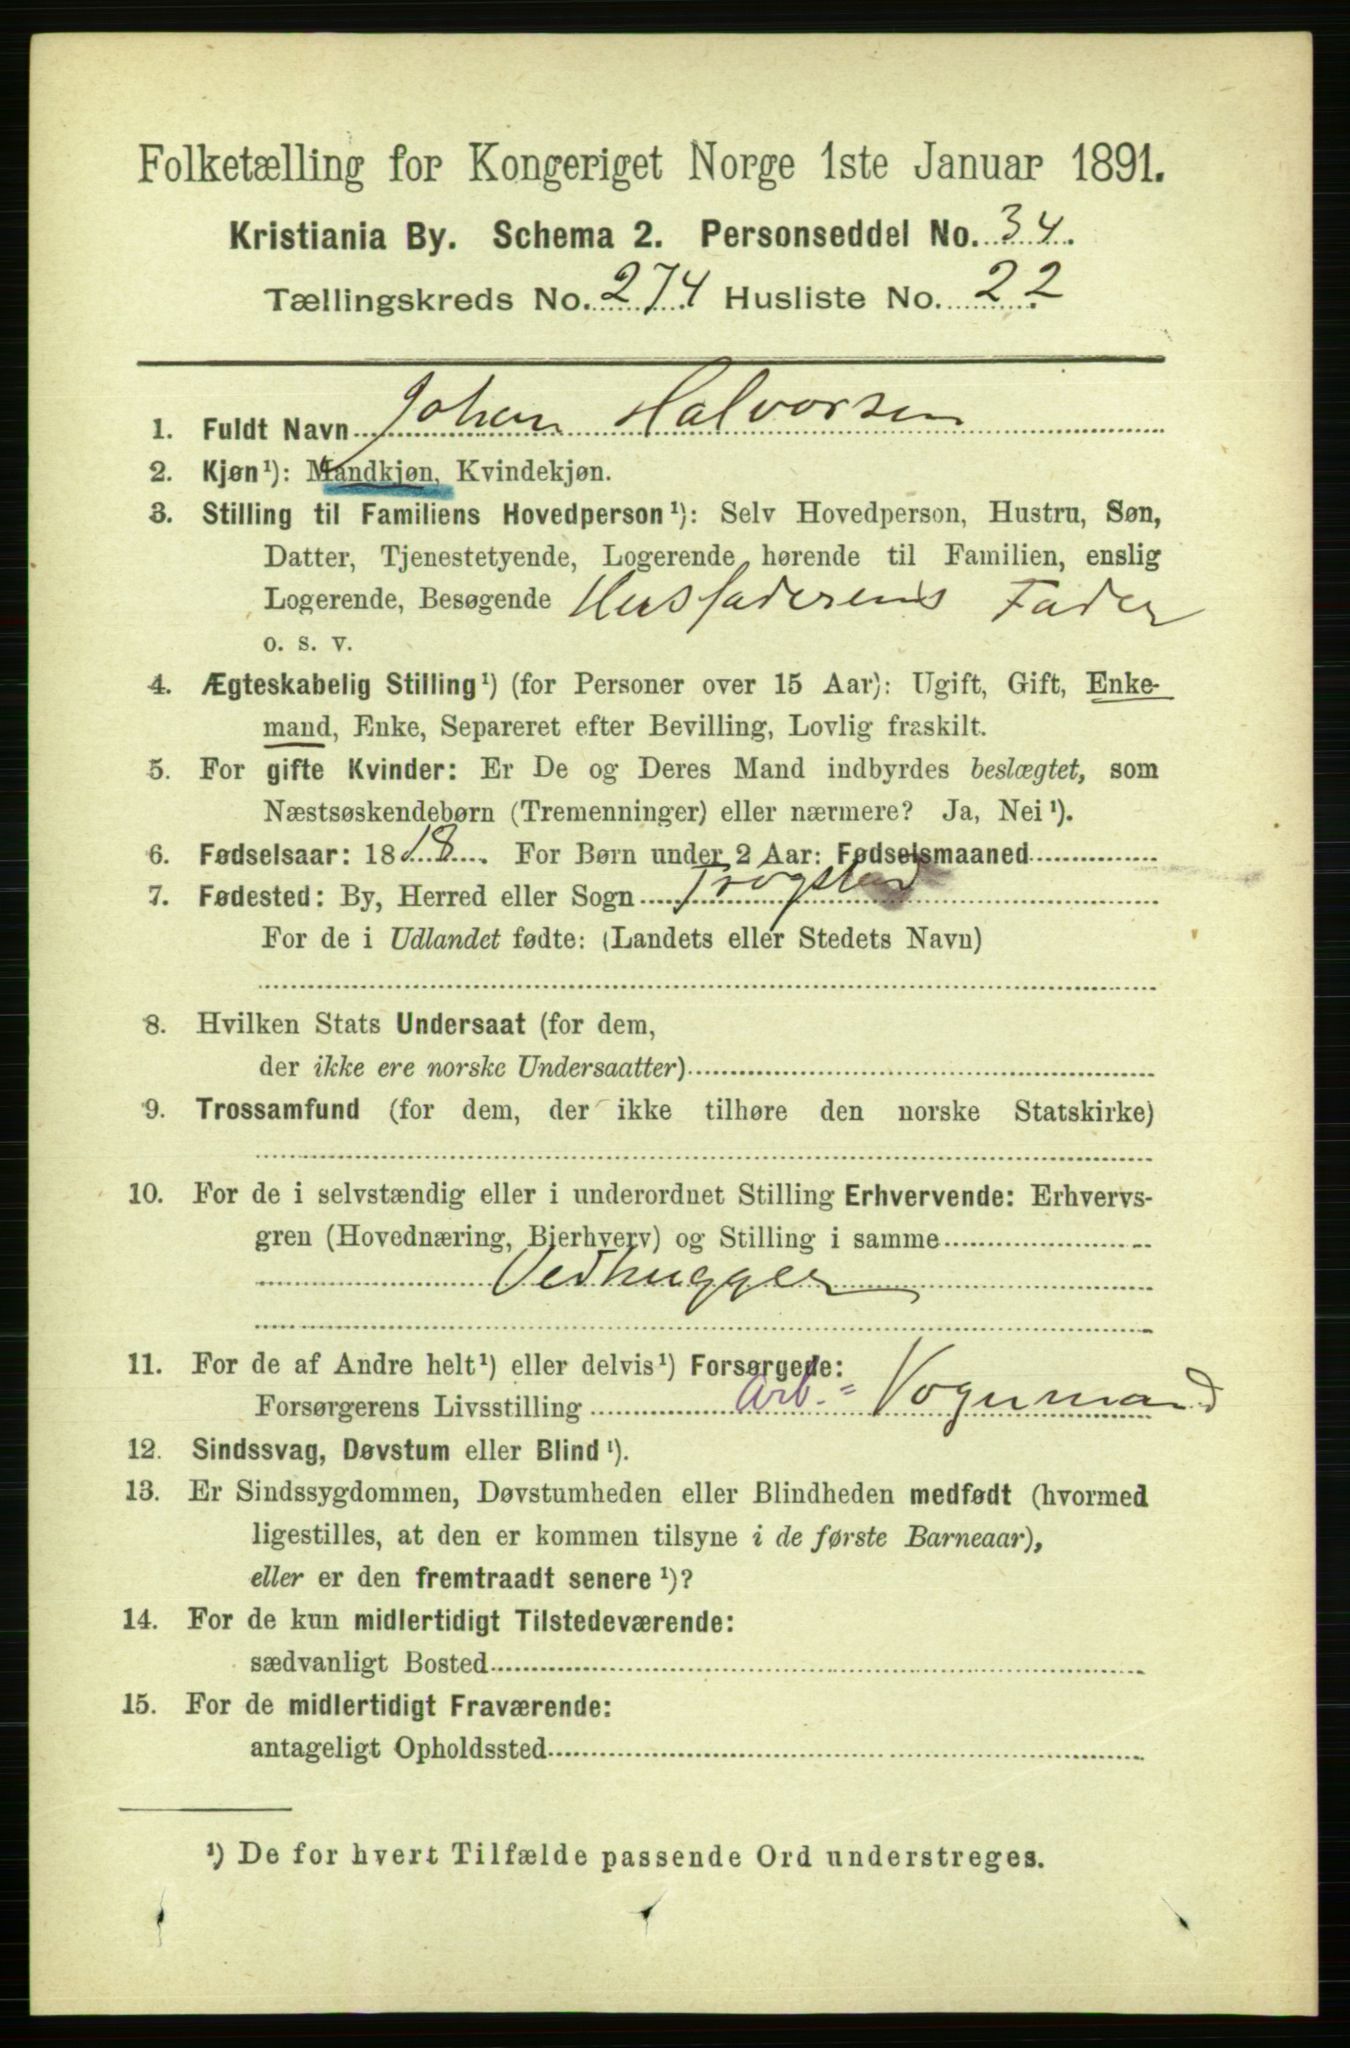 Folketælling for Kongeriget Norge 1ste Januar 1891.
Kristiania By. Schema 2. Personseddel No. 34.
Tællingskreds No. 274 Husliste No. 22
1. Fuldt Navn Johan Halvorsen
2. Kjøn¹): Mandkjøn, Kvindekjøn.
3. Stilling til Familiens Hovedperson¹): Selv Hovedperson, Hustru, Søn,
Datter, Tjenestetyende, Logerende hørende til Familien, enslig
Logerende, Besøgende Husfaderens Fader
o. s. v.
4. Ægteskabelig Stilling¹) (for Personer over 15 Aar): Ugift, Gift, Enke-
mand, Enke, Separeret efter Bevilling, Lovlig fraskilt.
5. For gifte Kvinder: Er De og Deres Mand indbyrdes beslægtet, som
Næstsøskendebørn (Tremenninger) eller nærmere? Ja, Nei¹).
6. Fødselsaar: 1818. For Børn under 2 Aar: Fødselsmaaned
7. Fødested: By, Herred eller Sogn Trøgstad
For de i Udlandet fødte: (Landets eller Stedets Navn)
8. Hvilken Stats Undersaat (for dem,
der ikke ere norske Undersaatter)
9. Trossamfund (for dem, der ikke tilhøre den norske Statskirke)
10. For de i selvstændig eller i underordnet Stilling Erhvervende: Erhvervs-
gren (Hovednæring, Bierhverv) og Stilling i samme
Vedhugger
11. For de af Andre helt¹) eller delvis¹) Forsørgede:
Forsørgerens Livsstilling Arb.= Vognmand
12. Sindssvag, Døvstum eller Blind¹).
13. Er Sindssygdommen, Døvstumheden eller Blindheden medfødt (hvormed
ligestilles, at den er kommen tilsyne i de første Barneaar),
eller er den fremtraadt senere¹)?
14. For de kun midlertidigt Tilstedeværende:
sædvanligt Bosted
15. For de midlertidigt Fraværende:
antageligt Opholdssted
¹) De for hvert Tilfælde passende Ord understreges.